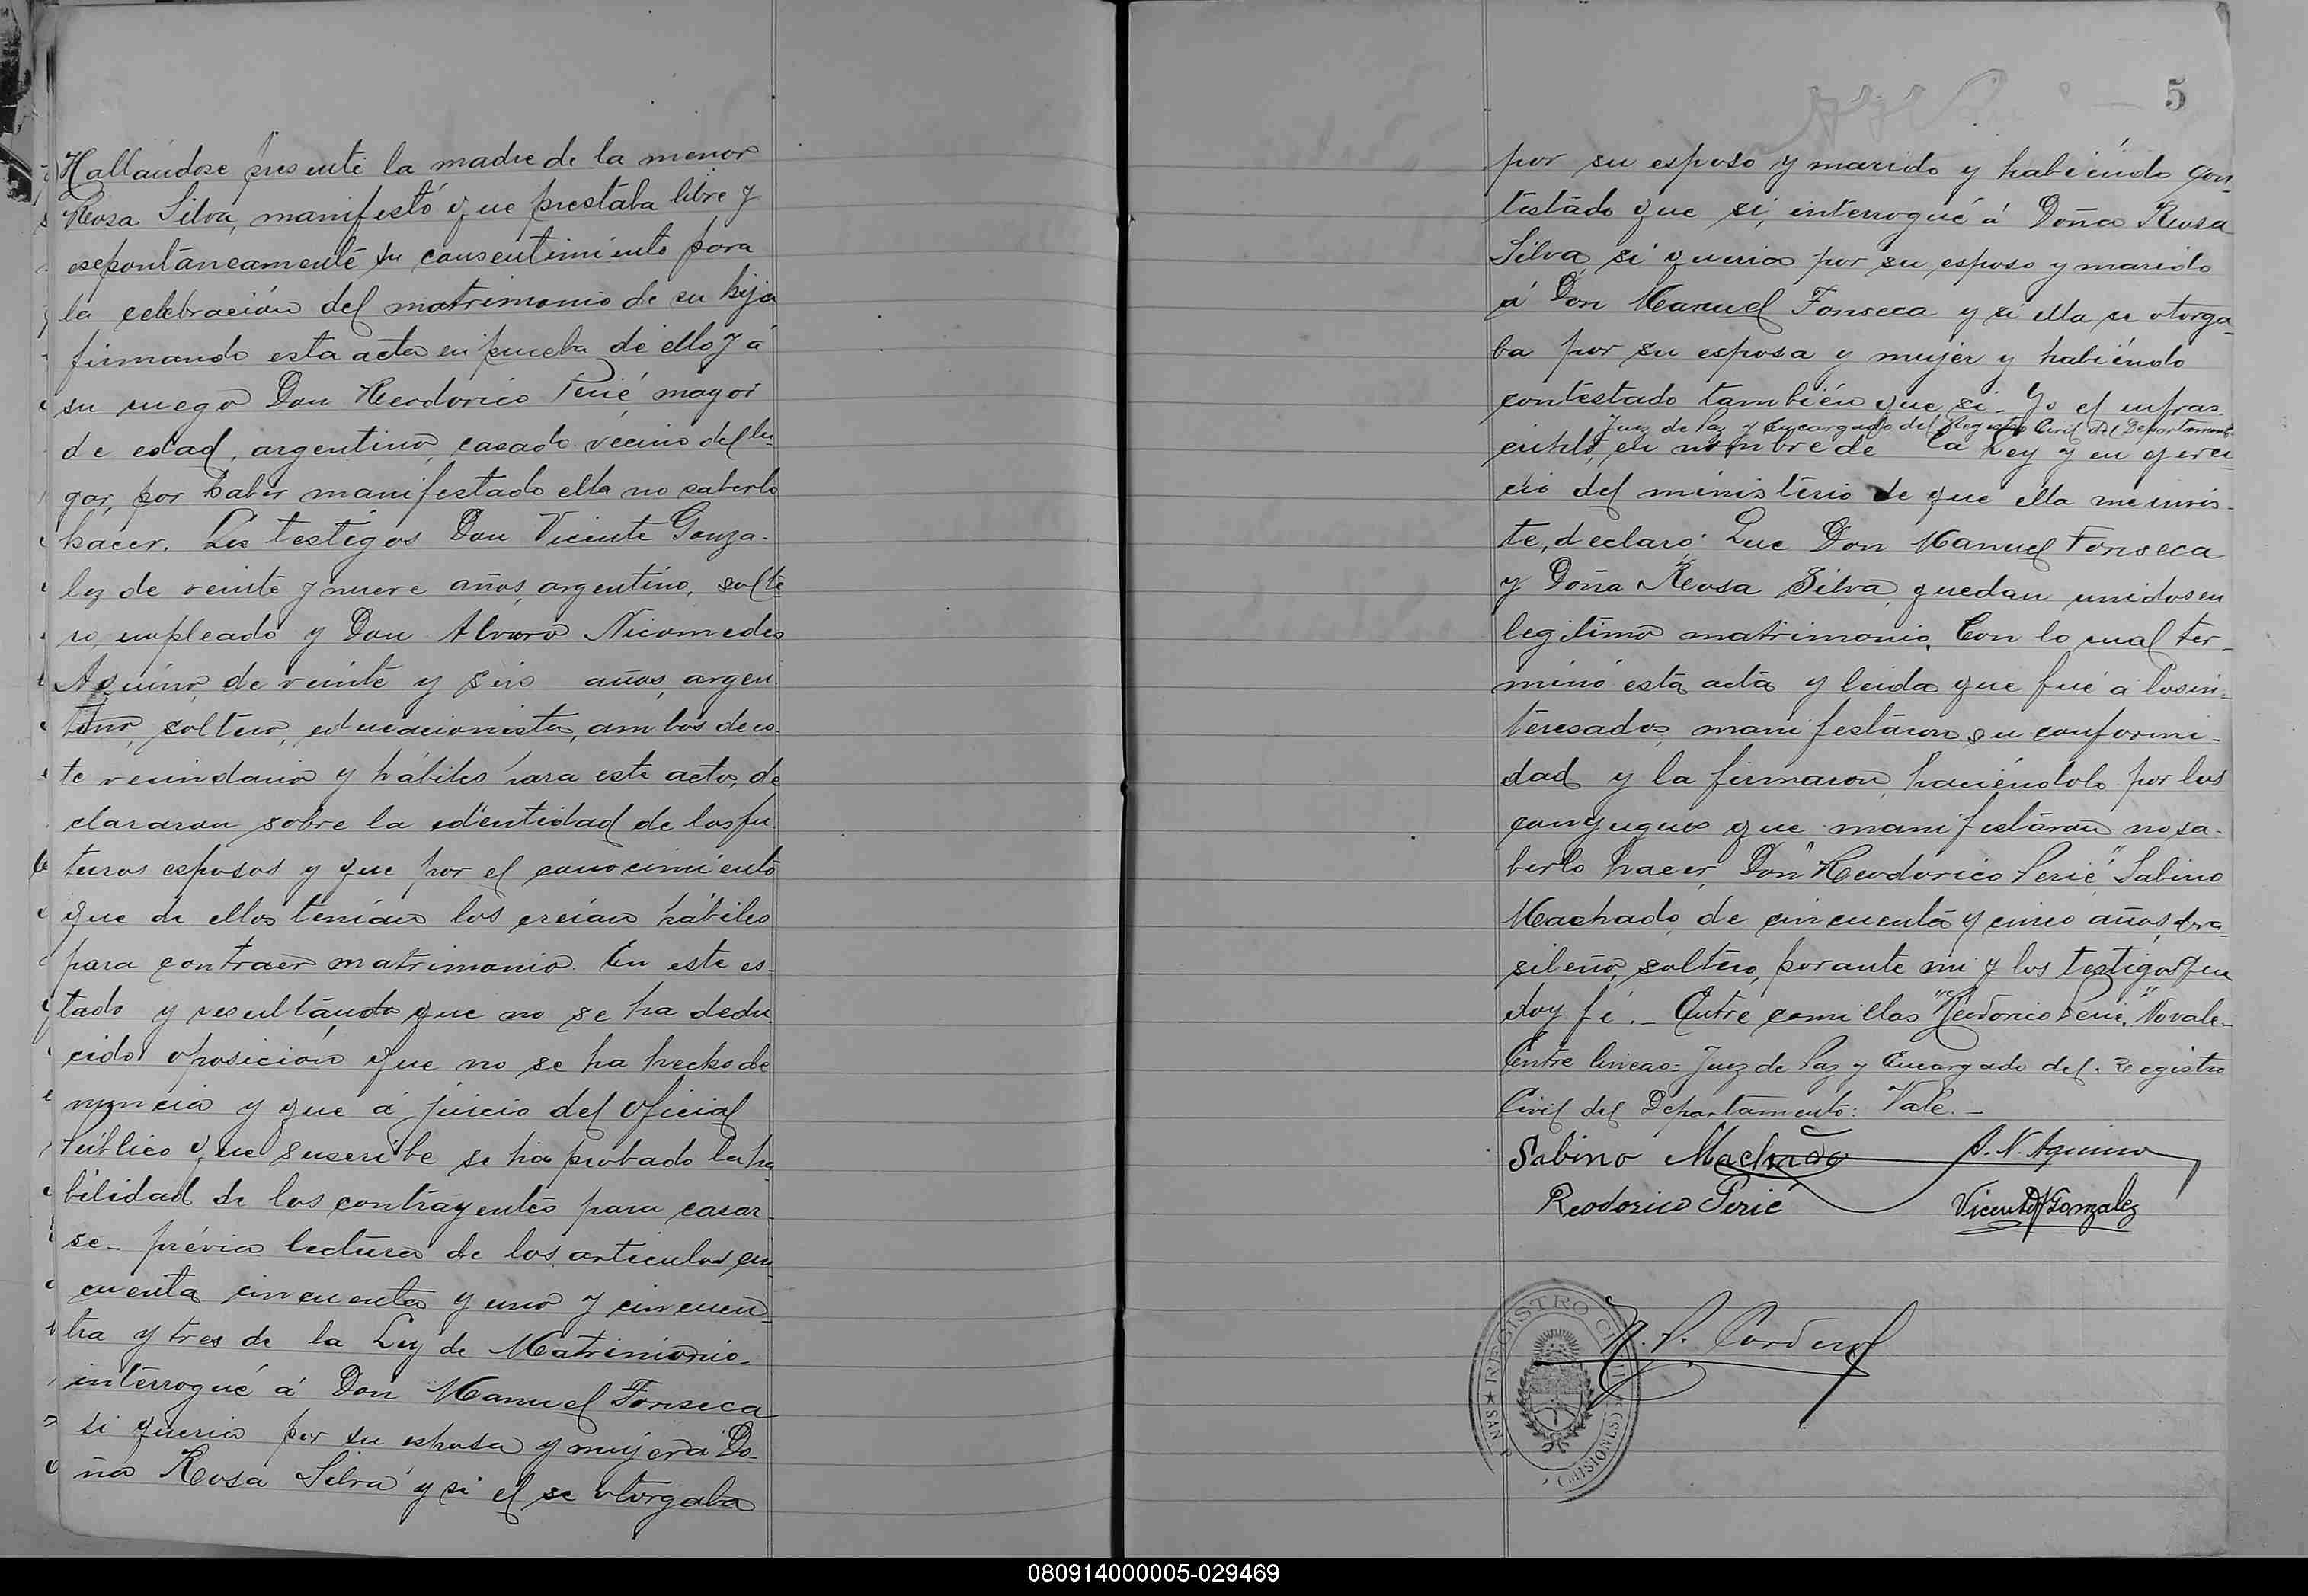 Hallandose presente la madre de la menor
Rosa Silva, manifestó que prestaba libre y
esepontáneamente su consentimiento para
la celebración del matrimonio de su hija
firmando esta acta en prueba de ello y á
su ruego Don Reodorico Perié, mayor
de edad, argentino, casado vecino del lu-
gar, por haber manifestado ella no saberlo
hácer. Los testigos Don Vicente Gonza-
lez de veinte y nueve años, argentino, solte-
ro, empleado y Don Alvaro Nicomedes
Aquino, de veinte y seis años, argen-
tino, soltero, educacionista, ambos de es-
te vecindario y hábiles para este acto, de
clararon sobre la identidad de los fu-
turos esposos y que por el conocimiento
que de ellos tenían los creían hábiles
para contraer matrimonio. En este es-
tado y resultando que no se ha dedu-
cido oposición que no se ha hecho de
nuncia y que á juicio del Oficial
Público que suscribe se ha probado la ha
bilidad de los contrayentes para casar-
se- prévia lectura de los articulos cin
cuenta cincuenta y uno y cincuen-
ta y tres de la Ley de Matrimonio-
interrogué á Don Manuel Fonseca
si queria por su esposa y mujer á Do-
ña Rosa Silva y si el se otorgaba
5
por su esposo y marido y habiéndo con-
testado que si, interrogué á Doña Rosa
Silva si queria por su esposo y marido
á Don Manuel Fonseca y si ella se otorga-
ba por su esposa y mujer y habiéndo
contestado también que si- Yo el infras-
Juez de Paz y Encargado del Registro Civil del Departamento
cripto, en nombre de la Ley y en ejerci-
cio del ministerio de que ella me invis-
te, declaro: Que Don Manuel Fonseca
y Doña Rosa Silva, quedan unidos en
legitimo matrimonio. Con lo cual ter-
minó esta acta y leida que fué a los in-
teresados, manifestaron su conformi-
dad y la firmaron, haciéndolo por los
conyugues que manifestaron no sa-
berlo hacer, Don "Reodorico Perié", Sabino
Machado, de cincuenta y cinco años, bra-
sileño, soltero, por ante mi y los testigos que
doy fé.- Entre comillas "Reodorico Perié". No vale-
Entre lineas: Juez de Paz y Encargado del Registro
Civil del Departamento: Vale.-
Sabino Machado A. N. Aquino
Reodorico Perié Vicente Gonzalez
REGISTRO CIVIL
★ SAN
(MISIONES)
080914000005-029469